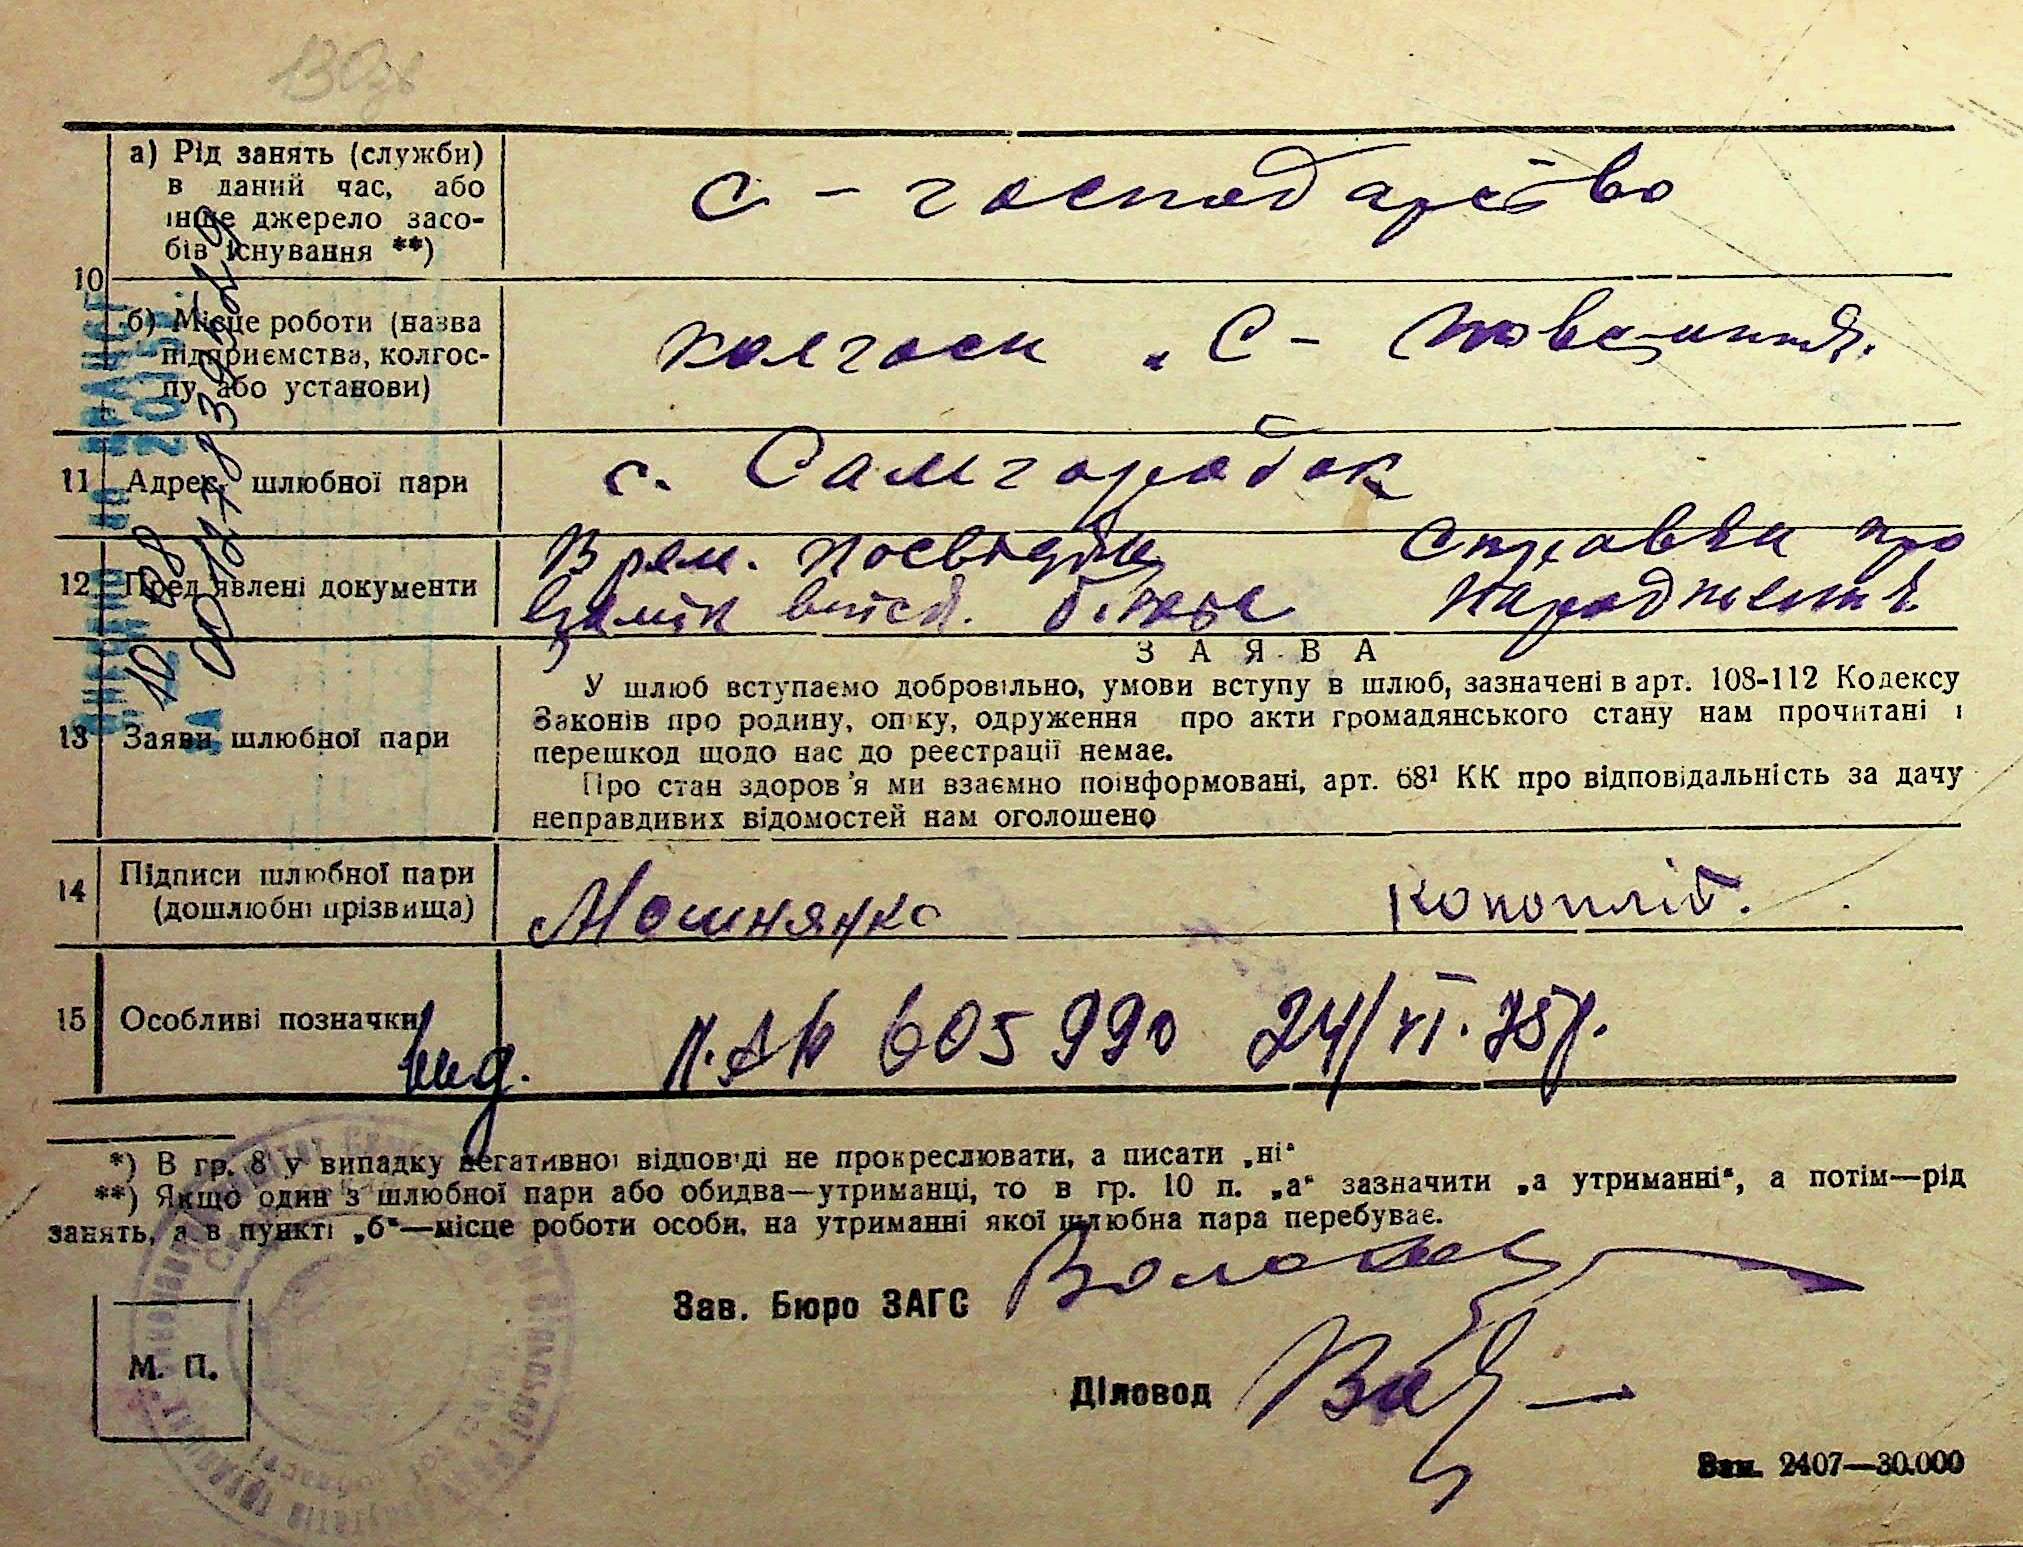 а) Рід занять (служби)
в даний час, або
інше джерело засо-
бів існування **)
с - господарство
10
б) Місце роботи (назва
підприємства, колгос-
пу або установи)
колгосп
11 Адрес шлюбної пари
с. Самгородок
12 Пред'явлені документи
Врем. посвідч. Справки про
взамін війск. білета народження
13 Заяви шлюбної пари
ЗАЯВА
У шлюб вступаємо добровільно, умови вступу в шлюб, зазначені в арт. 108-112 Кодексу
Законів про родину, опіку, одруження про акти громадянського стану нам прочитані і
перешкод щодо нас до реєстрації немає.
Про стан здоров'я ми взаємно поінформовані, арт. 68¹ КК про відповідальність за дачу
неправдивих відомостей нам оголошено
14 Підписи шлюбної пари
(дошлюбні прізвища)
Мошнянко
15 Особливі позначки
605990 24/VI. 75р.
*) В гр. 8 у випадку негативної відповіді не прокреслювати, а писати „ні“
**) Якщо один з шлюбної пари або обидва—утриманці, то в гр. 10 п. „а“ зазначити „а утриманні“, а потім—рід
занять, а в пункті „б“—місце роботи особи, на утриманні якої шлюбна пара перебуває.
Зав. Бюро ЗАГС
М. П.
Діловод
Зам. 2407—30.000